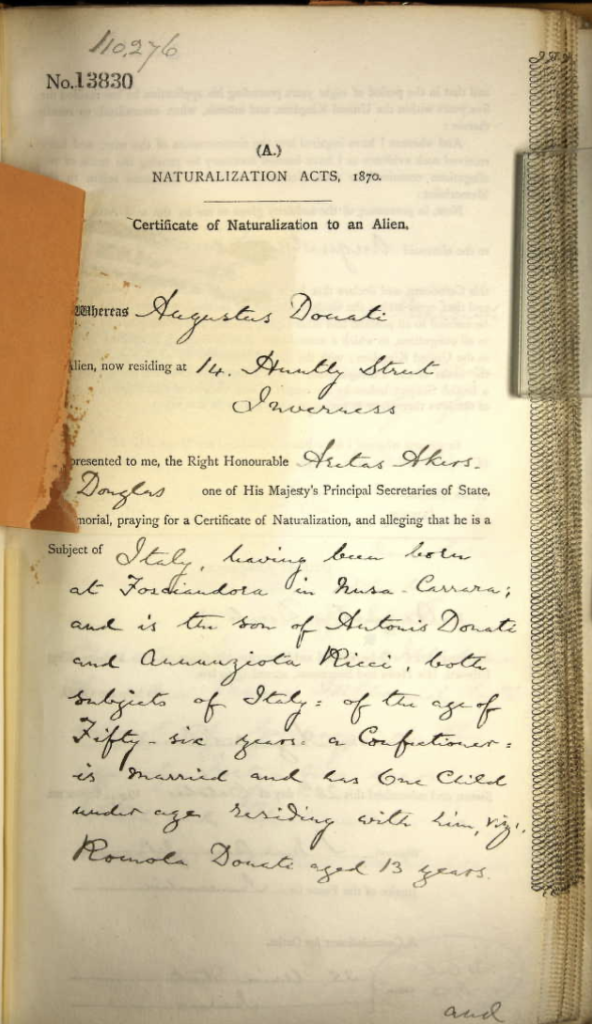 110,276
No. 13830
(A.)
NATURALIZATION ACTS, 1870.
Certificate of Naturalization to an Alien.
Whereas Augustus Donati
Alien, now residing at 14. Huntly Street
Inverness
presented to me, the Right Honourable Aretas Akers-
Douglas one of His Majesty's Principal Secretaries of State,
morial, praying for a Certificate of Naturalization, and alleging that he is a
Subject of Italy, having been born
at Fosciandora in Musa-Carrara;
and is the son of Antonio Donati
and Annunziota Ricci, both
subjects of Italy: of the age of
Fifty-six years: a Confectioner:
is married and has One Child
under age residing with him, viz.
Romola Donati aged 13 years.
and